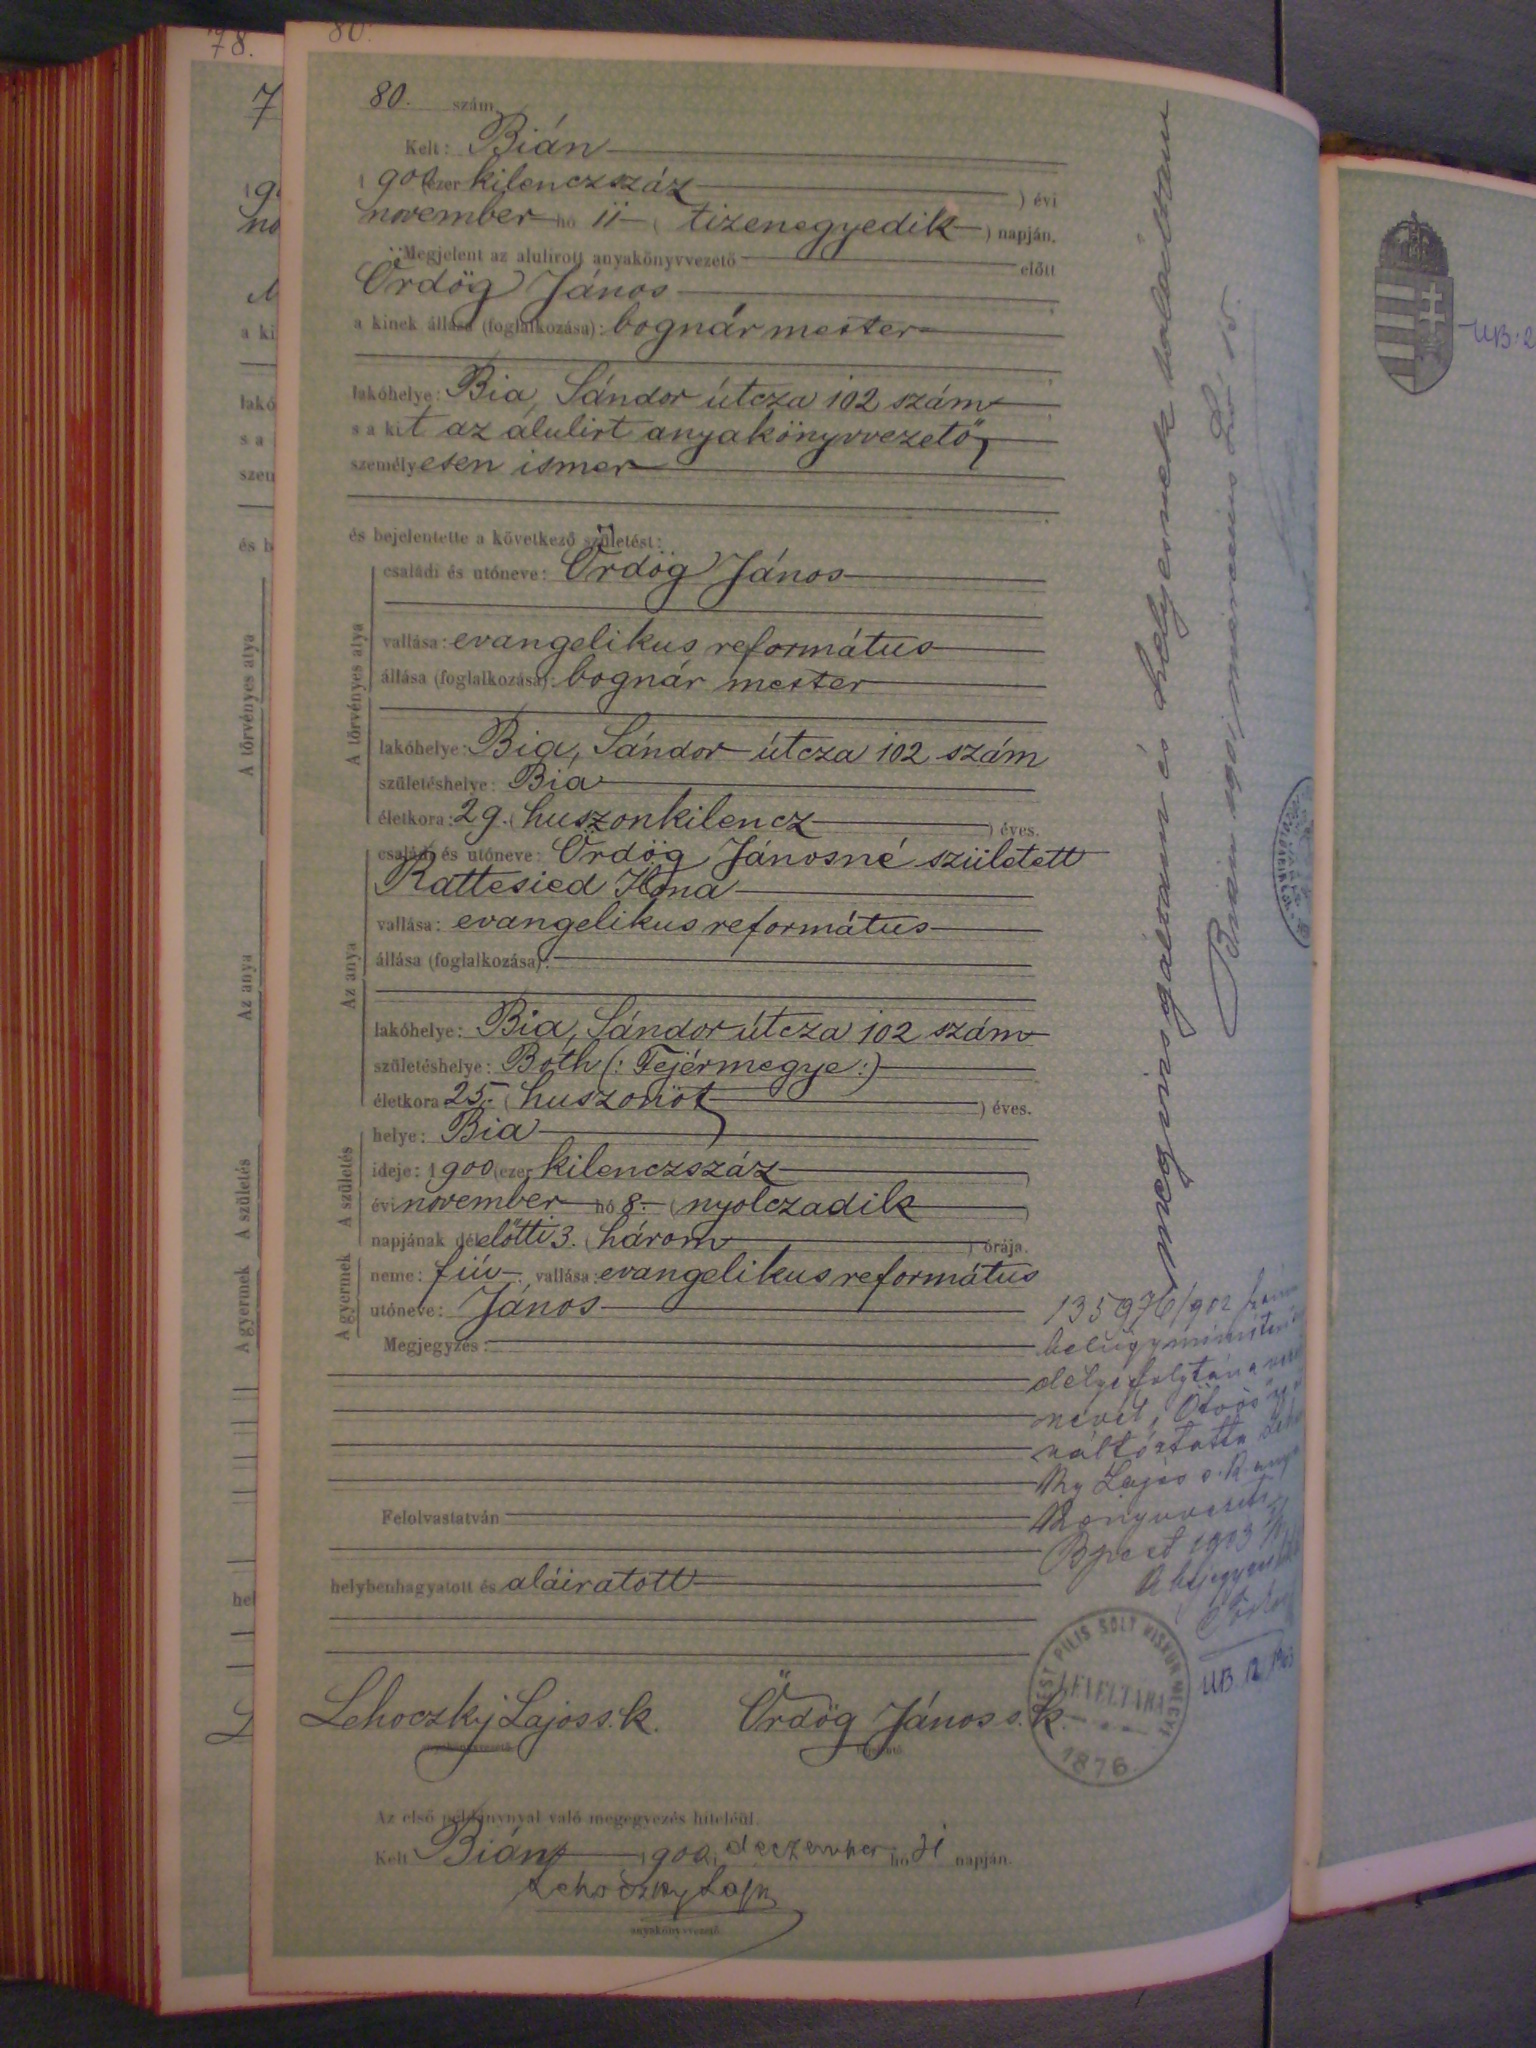 78.
80.
80. szám.
Kelt: Bián
1900 (ezer kilenczszáz ) évi
november hó 11 ( tizenegyedik ) napján.
Megjelent az alulirott anyakönyvvezető előtt
Ördög János
a kinek állása (foglalkozása): bognár mester
lakóhelye: Bia, Sándor útcza 102 szám
s a kit az álulirt anyakönyvvezető,
személyesen ismer
és bejelentette a következő születést:
A törvényes atya
családi és utóneve: Ördög János
vallása: evangelikus református
állása (foglalkozása): bognár mester
lakóhelye: Bia, Sándor útcza 102 szám
születéshelye: Bia
életkora: 29. ( huszonkilencz ) éves.
Az anya
családi és utóneve: Ördög Jánosné született
Ilona
vallása: evangelikus református
állása (foglalkozása):
lakóhelye: Bia, Sándor útcza 102 szám
születéshelye: Bóth (: Fejérmegye :)
életkora 25. ( huszonöt ) éves.
A születés
helye: Bia
ideje: 1900 (ezer kilenczszáz )
évi november hó 8. ( nyolczadik )
napjának délelőtti 3. ( három ) órája.
A gyermek
neme: fiú vallása: evangelikus református
utóneve: János
Megjegyzés:
Felolvastatván
helybenhagyatott és aláiratott
Lehoczky Lajos s.k. Ördög János s.k.
anyakönyvvezető
Az első példánynyal való megegyezés hiteléül
Kelt Bián, 1900, deczember hó 31 napján.
Lehoczky Lajos
anyakönyvvezető
megvizsgálván és helyesnek találtam
Bián 1901,
135976/902
folytán a
nevét, Ötvös
változtatta
Lajos s.k.
Bpest 1903
PEST PILIS SOLT KISKUN MEGYE
LEVELTÁRA
1876
A törvényes atya
Az anya
A születés
A gyermek